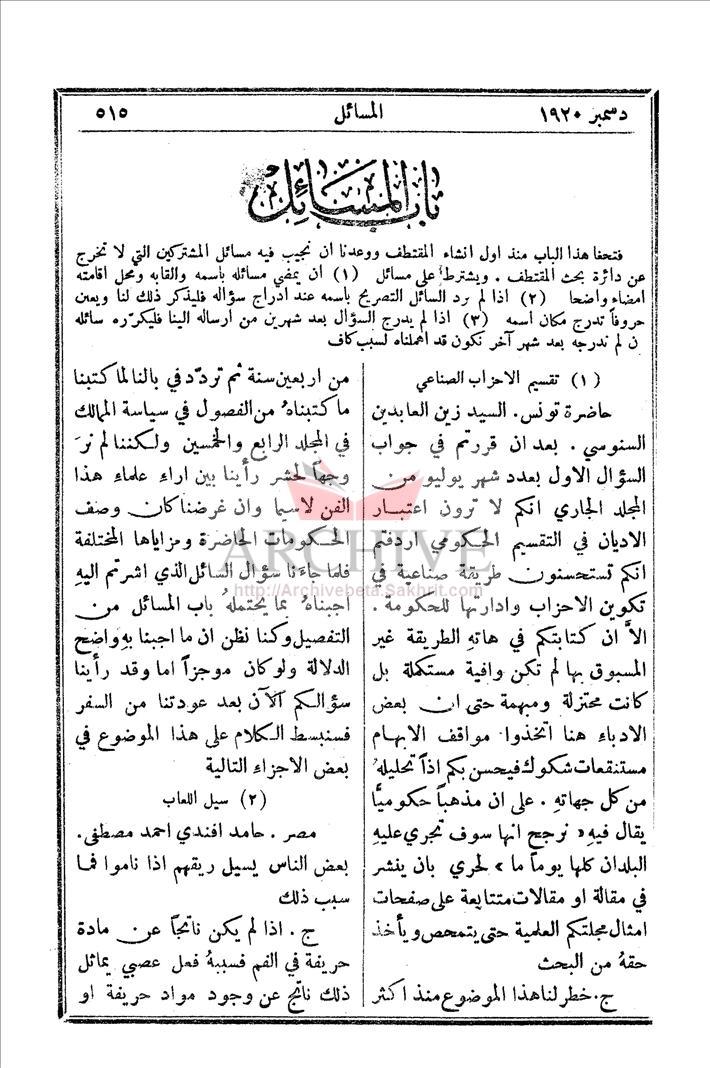 دسمبر ١٩٢٠
المسائل
٥١٥
باب المسائل
فتحنا هذا الباب منذ اول انشاء المقتطف ووعدنا ان نجيب فيه مسائل المشتركين التي لا تخرج
عن دائرة بحث المقتطف . ويشترط على مسائل (١) ان يمضي مسائله باسمه والقابه ومحل اقامته
امضاء واضحا (٢) اذا لم يرد السائل التصريح باسمه عند ادراج سؤاله فليذكر ذلك لنا ويعين
حروفاً تدرج مكان اسمه (٣) اذا لم يدرج السؤال بعد شهرين من ارساله الينا فليكرّره سائله
ن لم ندرجه بعد شهر آخر نكون قد اهملناه لسبب كاف
(١) تقسيم الاحزاب الصناعي
حاضرة تونس. السيد زين العابدين
السنوسي . بعد ان قررتم في جواب
السؤال الاول بعدد شهر يوليو من
المجلد الجاري انكم لا ترون اعتبار
الاديان في التقسيم الحكومي اردفتم
انكم تستحسنون طريقة صناعية في
تكوين الاحزاب وادارتها للحكومة .
الاَّ ان كتابتكم في هاته الطريقة غير
المسبوق بها لم تكن وافية مستكملة بل
كانت مختزلة ومبهمة حتى ان بعض
الادباء هنا اتخذوا مواقف الابهام
مستنقعات شكوك فيحسن بكم اذاً تحليلهُ
من كل جهاته . على ان مذهباً حكوميًّا
يقال فيهِ « نرجح انها سوف تجري عليهِ
البلدان كلها يوماً ما » لحري بان ينشر
في مقالة او مقالات متتابعة على صفحات
امثال مجلتكم العلمية حتى يتمحص ويأخذ
حقهُ من البحث
ج. خطر لنا هذا الموضوع منذ اكثر
من اربعين سنة ثم تردّد في بالنا لما كتبنا
ما كتبناهُ من الفصول في سياسة الممالك
في المجلد الرابع والخمسين ولكننا لم نرَ
وجهاً لحشر رأينا بين اراء علماء هذا
الفن لا سيما وان غرضنا كان وصف
الحكومات الحاضرة ومزاياها المختلفة
فلما جاءَنا سؤال السائل الذي اشرتم اليهِ
اجبناهُ بما يحتملهُ باب المسائل من
التفصيل وكنا نظن ان ما اجبنا بهِ واضح
الدلالة ولو كان موجزاً اما وقد رأينا
سؤالكم الآن بعد عودتنا من السفر
فسنبسط الكلام على هذا الموضوع في
بعض الاجزاء التالية
(٢) سيل اللعاب
مصر . حامد افندي احمد مصطفى.
بعض الناس يسيل ريقهم اذا ناموا فما
سبب ذلك
ج . اذا لم يكن ناتجاً عن مادة
حريفة في الفم فسببهُ فعل عصبي يماثل
ذلك ناتج عن وجود مواد حريفة او
ARCHIVE
http://Archivebeta.Sakhrit.com